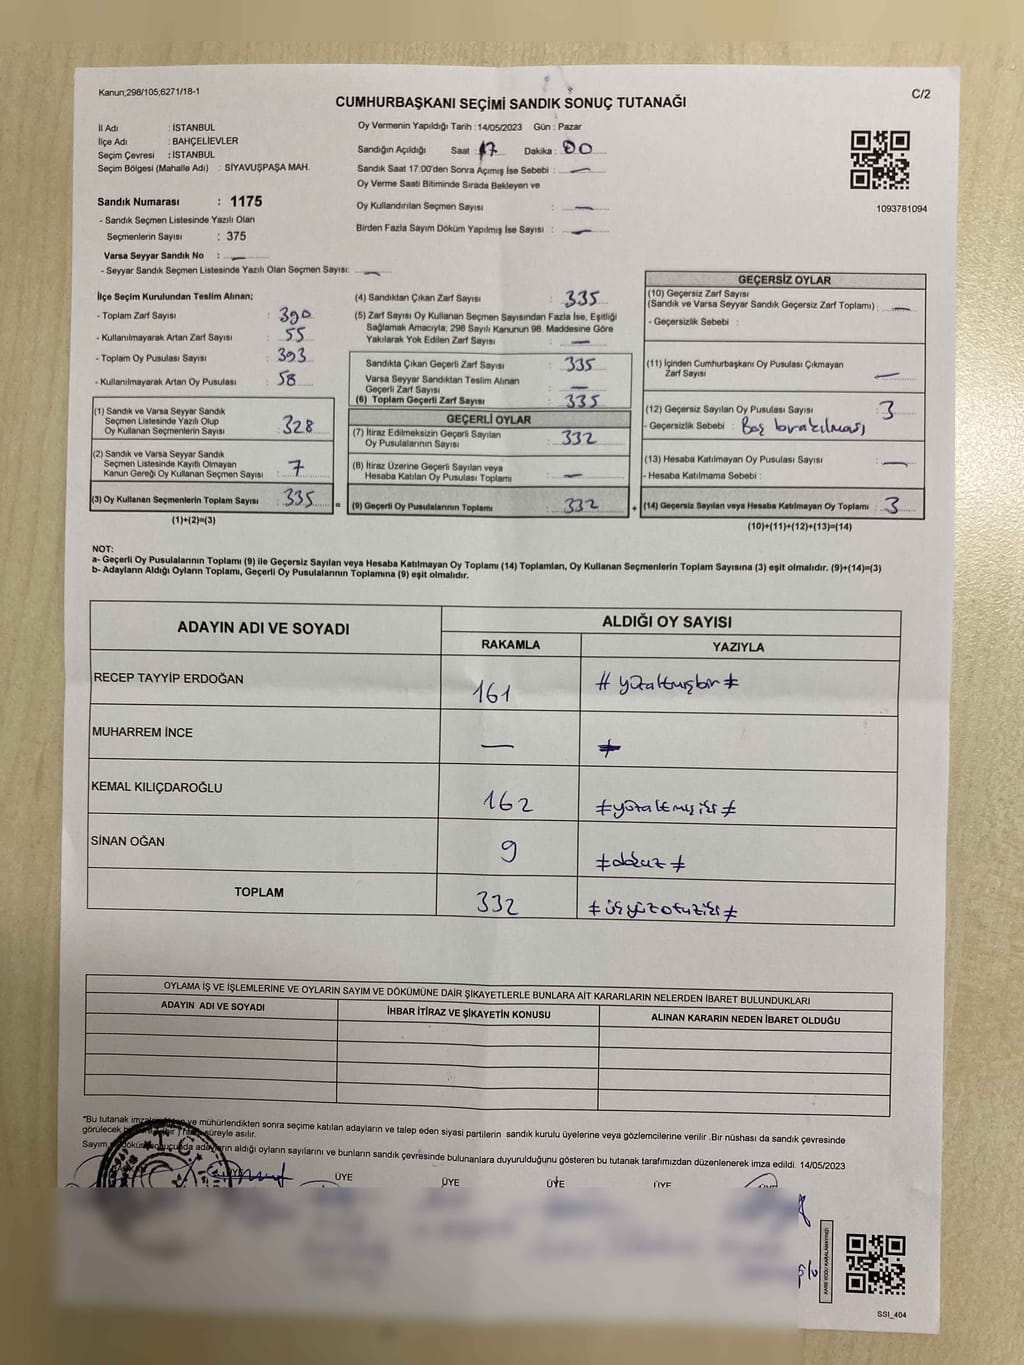 Kanun;298/105;6271/18-1
C/2
CUMHURBAŞKANI SEÇİMİ SANDIK SONUÇ TUTANAĞI
İl Adı : İSTANBUL
İlçe Adı : BAHÇELİEVLER
Seçim Çevresi : İSTANBUL
Seçim Bölgesi (Mahalle Adı) : SİYAVUŞPAŞA MAH.
Oy Vermenin Yapıldığı Tarih : 14/05/2023 Gün : Pazar
Sandığın Açıldığı Saat : 17 Dakika : 00
Sandık Saat 17:00'den Sonra Açımış İse Sebebi : —
Oy Verme Saati Bitiminde Sırada Bekleyen ve
Oy Kullandırılan Seçmen Sayısı : —
Birden Fazla Sayım Döküm Yapılmış İse Sayısı : —
1093781094
Sandık Numarası : 1175
- Sandık Seçmen Listesinde Yazılı Olan
Seçmenlerin Sayısı : 375
Varsa Seyyar Sandık No : —
- Seyyar Sandık Seçmen Listesinde Yazılı Olan Seçmen Sayısı: —
İlçe Seçim Kurulundan Teslim Alınan;
- Toplam Zarf Sayısı : 390
- Kullanılmayarak Artan Zarf Sayısı : 55
- Toplam Oy Pusulası Sayısı : 393
- Kullanılmayarak Artan Oy Pusulası : 58
(1) Sandık ve Varsa Seyyar Sandık
Seçmen Listesinde Yazılı Olup
Oy Kullanan Seçmenlerin Sayısı : 328
(2) Sandık ve Varsa Seyyar Sandık
Seçmen Listesinde Kayıtlı Olmayan
Kanun Gereği Oy Kullanan Seçmen Sayısı : 7
(3) Oy Kullanan Seçmenlerin Toplam Sayısı : 335
(1)+(2)=(3)
(4) Sandıktan Çıkan Zarf Sayısı : 335
(5) Zarf Sayısı Oy Kullanan Seçmen Sayısından Fazla İse, Eşitliği
Sağlamak Amacıyla; 298 Sayılı Kanunun 98. Maddesine Göre
Yakılarak Yok Edilen Zarf Sayısı : —
Sandıkta Çıkan Geçerli Zarf Sayısı : 335
Varsa Seyyar Sandıktan Teslim Alınan
Geçerli Zarf Sayısı : —
(6) Toplam Geçerli Zarf Sayısı : 335
GEÇERLİ OYLAR
(7) İtiraz Edilmeksizin Geçerli Sayılan
Oy Pusulalarının Sayısı : 332
(8) İtiraz Üzerine Geçerli Sayılan veya
Hesaba Katılan Oy Pusulası Toplamı : —
= (9) Geçerli Oy Pusulalarının Toplamı : 332
GEÇERSİZ OYLAR
(10) Geçersiz Zarf Sayısı
(Sandık ve Varsa Seyyar Sandık Geçersiz Zarf Toplamı) : —
- Geçersizlik Sebebi :
(11) İçinden Cumhurbaşkanı Oy Pusulası Çıkmayan
Zarf Sayısı —
(12) Geçersiz Sayılan Oy Pusulası Sayısı : 3
- Geçersizlik Sebebi : Boş bırakılması
(13) Hesaba Katılmayan Oy Pusulası Sayısı : —
- Hesaba Katılmama Sebebi :
+ (14) Geçersiz Sayılan veya Hesaba Katılmayan Oy Toplamı : 3
(10)+(11)+(12)+(13)=(14)
NOT:
a- Geçerli Oy Pusulalarının Toplamı (9) ile Geçersiz Sayılan veya Hesaba Katılmayan Oy Toplamı (14) Toplamları, Oy Kullanan Seçmenlerin Toplam Sayısına (3) eşit olmalıdır. (9)+(14)=(3)
b- Adayların Aldığı Oyların Toplamı, Geçerli Oy Pusulalarının Toplamına (9) eşit olmalıdır.
ADAYIN ADI VE SOYADI
ALDIĞI OY SAYISI
RAKAMLA YAZIYLA
RECEP TAYYİP ERDOĞAN 161 # yüzaltmışbir #
MUHARREM İNCE — #
KEMAL KILIÇDAROĞLU 162 # yüzaltmışiki #
SİNAN OĞAN 9 # dokuz #
TOPLAM 332 # üçyüzotuziki #
OYLAMA İŞ VE İŞLEMLERİNE VE OYLARIN SAYIM VE DÖKÜMÜNE DAİR ŞİKAYETLERLE BUNLARA AİT KARARLARIN NELERDEN İBARET BULUNDUKLARI
ADAYIN ADI VE SOYADI İHBAR İTİRAZ VE ŞİKAYETİN KONUSU ALINAN KARARIN NEDEN İBARET OLDUĞU
*Bu tutanak ve mühürlendikten sonra seçime katılan adayların ve talep eden siyasi partilerin sandık kurulu üyelerine veya gözlemcilerine verilir .Bir nüshası da sandık çevresinde
görülecek süreyle asılır.
Sayım adayların aldığı oyların sayılarını ve bunların sandık çevresinde bulunanlara duyurulduğunu gösteren bu tutanak tarafımızdan düzenlenerek imza edildi. 14/05/2023
ÜYE ÜYE ÜYE ÜYE
SSI_404